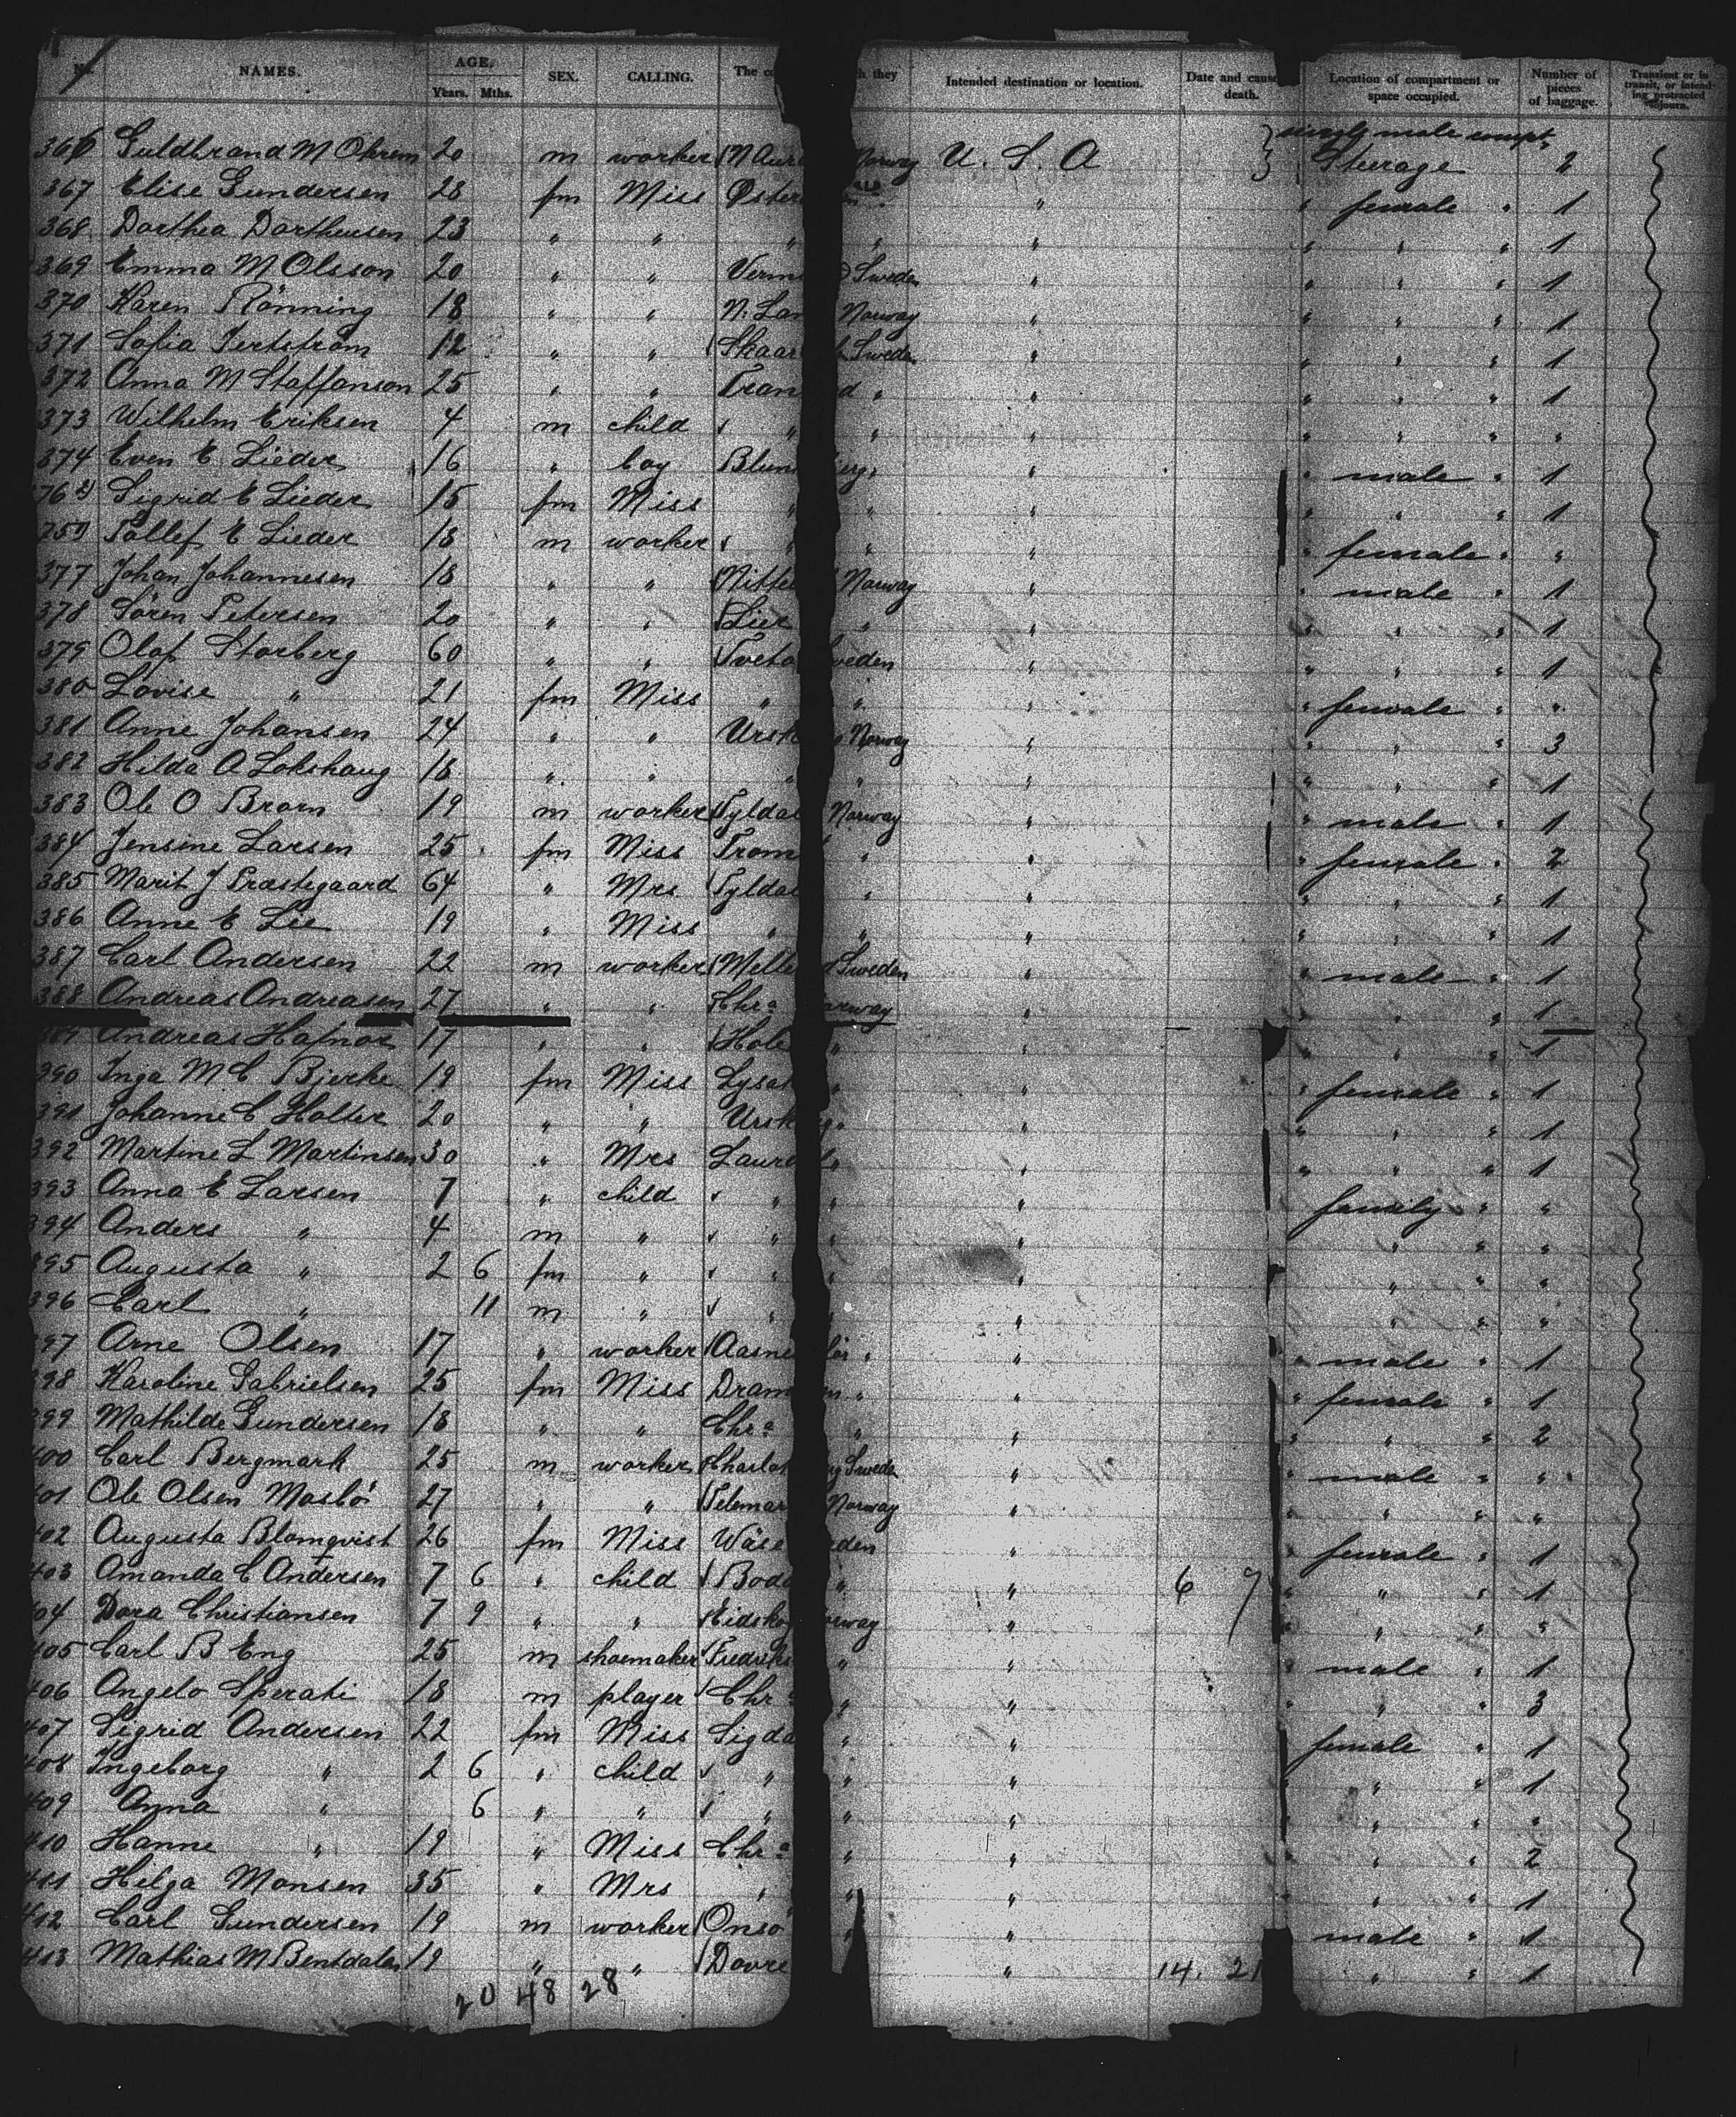 No. NAMES. AGE. Years. Mths. SEX. CALLING. The co h they Intended destination or location. Date and cause death. Location of compartment or space occupied. Number of pieces of baggage. Transient or in transit, or intending protracted sojourn.
single male compt.
366 Guldbrand M Ohrem 20 m worker N Aur Norway U. S. A Steerage 2
367 Elise Gundersen 28 fm Miss Øster " " female " 1
368 Dorthea Dortheusen 23 " " " " " " " " 1
369 Emma M Olsson 20 " " Verm Sweden " " " " 1
370 Karen Rönning 18 " " N. Lan Norway " " " " 1
371 Sofia Jertström 12 " " Skaar Sweden " " " " 1
372 Anna M Staffanson 25 " " Tran d " " " " " 1
373 Wilhelm Eriksen 4 m child " " " " " " "
374 Even E Lieder 16 " boy Blum erg " " male " 1
Sigrid E Lieder 15 fm Miss " " " " " " 1
Tollef E Lieder 18 m worker " " " " female " "
377 Johan Johannesen 18 " " Nitte Norway " " male " 1
378 Sören Petersen 20 " " Lier " " " " " 1
379 Olof Storberg 60 " " Tveta weden " " " " 1
380 Lovise " 21 fm Miss " " " " female " "
381 Anne Johansen 24 " " Ursk g Norway " " " " 3
382 Hilda A Lokshaug 18 " " " " " " " " 1
383 Ole O Brorn 19 m worker Tyldal Norway " " male " 1
384 Jensine Larsen 25 fm Miss Trom " " " female " 2
385 Marit J Præstegaard 64 " Mrs Tyldal " " " " " 1
386 Anne E Lie 19 " Miss " " " " " " 1
387 Carl Andersen 22 m worker Melle d Sweden " " male " 1
388 Andreas Andreasen 27 " " Chr a orway " " " " 1
389 Andreas Hafnor 17 " " Hole " " " " " 1
390 Inga M C Bjerke 19 fm Miss Lysak " " " female " 1
391 Johanne C Holter 20 " " Ursk g " " " " " 1
392 Martine L Martinsen 30 " Mrs Laur " " " " " 1
393 Anna E Larsen 7 " child " " " family " "
394 Anders " 4 m " " " " " " "
395 Augusta " 2 6 fm " " " " " " "
396 Carl " 11 m " " " " " " "
397 Arne Olsen 17 " worker Aasne " " " male " 1
398 Karoline Gabrielsen 25 fm Miss Dram en " " " female " 1
399 Mathilde Gundersen 18 " " Chr a " " " " " 2
400 Carl Bergmark 25 m worker Charlot g Sweden " " male " "
401 Ole Olsen Masbö 27 " " Telemar Norway " " " " "
402 Augusta Blomqvist 26 fm Miss Wäse eden " " female " 1
403 Amanda C Andersen 7 6 " child Boda " " 6 7 " " " 1
404 Dora Christiansen 7 9 " " Eidskog orway " " " " "
405 Carl B Eng 25 m shoemaker Fredriks " " " male " 1
406 Angelo Sperati 18 m player Chr a " " " " " 3
407 Sigrid Andersen 22 fm Miss Sigda " " female " 1
408 Ingeborg " 2 6 " child " " " " " 1
409 Anna " 6 " " " " " " " "
410 Hanne " 19 " Miss Chr a " " " " 2
411 Helga Monsen 35 " Mrs " " " " " 1
412 Carl Gundersen 19 m worker Onsö " " male " 1
413 Mathias M Bentdalen 19 " " Dovre " 14. 21 " " 1
20 48 28